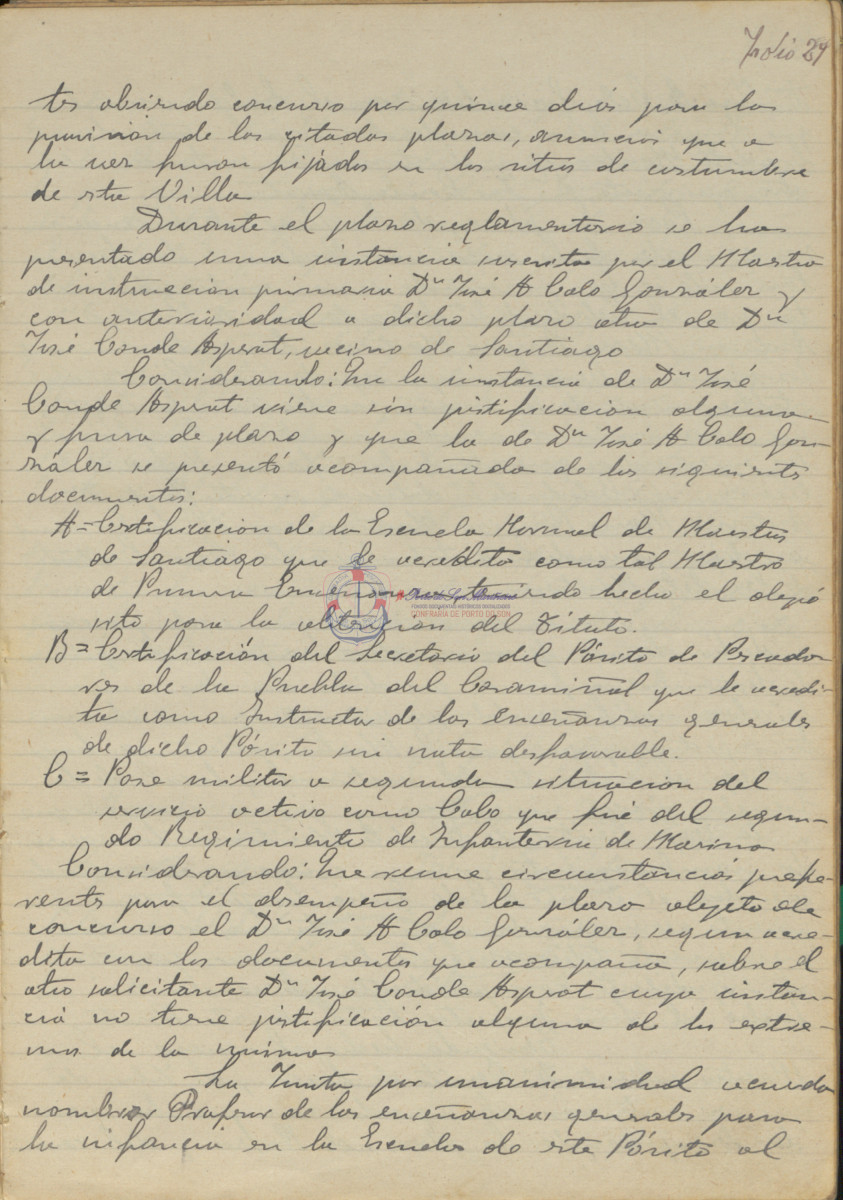 Folio 29
tes abriendo concurso por quince dias para la
provisión de las citadas plazas, anuncios que a
la vez fueron fijados en los sitios de costumbre
de esta Villa
Durante el plazo reglamentario se ha
presentado una instancia suscrita por el Maestro
de instrucción primaria Dn José A Calo González y
con anterioridad a dicho plazo otra de Dn
José Conde Asperat, vecino de Santiago
Considerando: Que la instancia de Dn José
Conde Asperat viene sin justificación alguna
y fuera de plazo y que la de Dn José A Calo Gon-
zález se presentó acompañada de los siguientes
documentos:
A = Certificación de la Escuela Normal de Maestros
de Santiago que le acredita como tal Maestro
de Primera Enseñanza teniendo hecho el depó
sito para la obtención del Título.
B = Certificación del Secretario del Pósito de Pescado-
res de la Puebla del Caramiñal que le acredi-
ta como Instructor de las enseñanzas generales
de dicho Pósito sin nota desfavorable.
C = Pase militar a segunda situación del
servicio activo como Cabo que fué del segun-
do Regimiento de Infanteria de Marina
Considerando: Que reune circunstancias prefe-
rentes para el desempeño de la plaza objeto de
concurso el Dn José A Calo González, segun acre-
dita con los documentos que acompaña, sobre el
otro solicitante Dn José Conde Asperat cuya instan-
cia no tiene justificación alguna de los extre-
mos de la misma
La Junta por unanimidad acuerda
nombrar Profesor de las enseñanzas generales para
la infancia en la Escuela de este Pósito al
CONFRARÍA DE PORTO DO SON